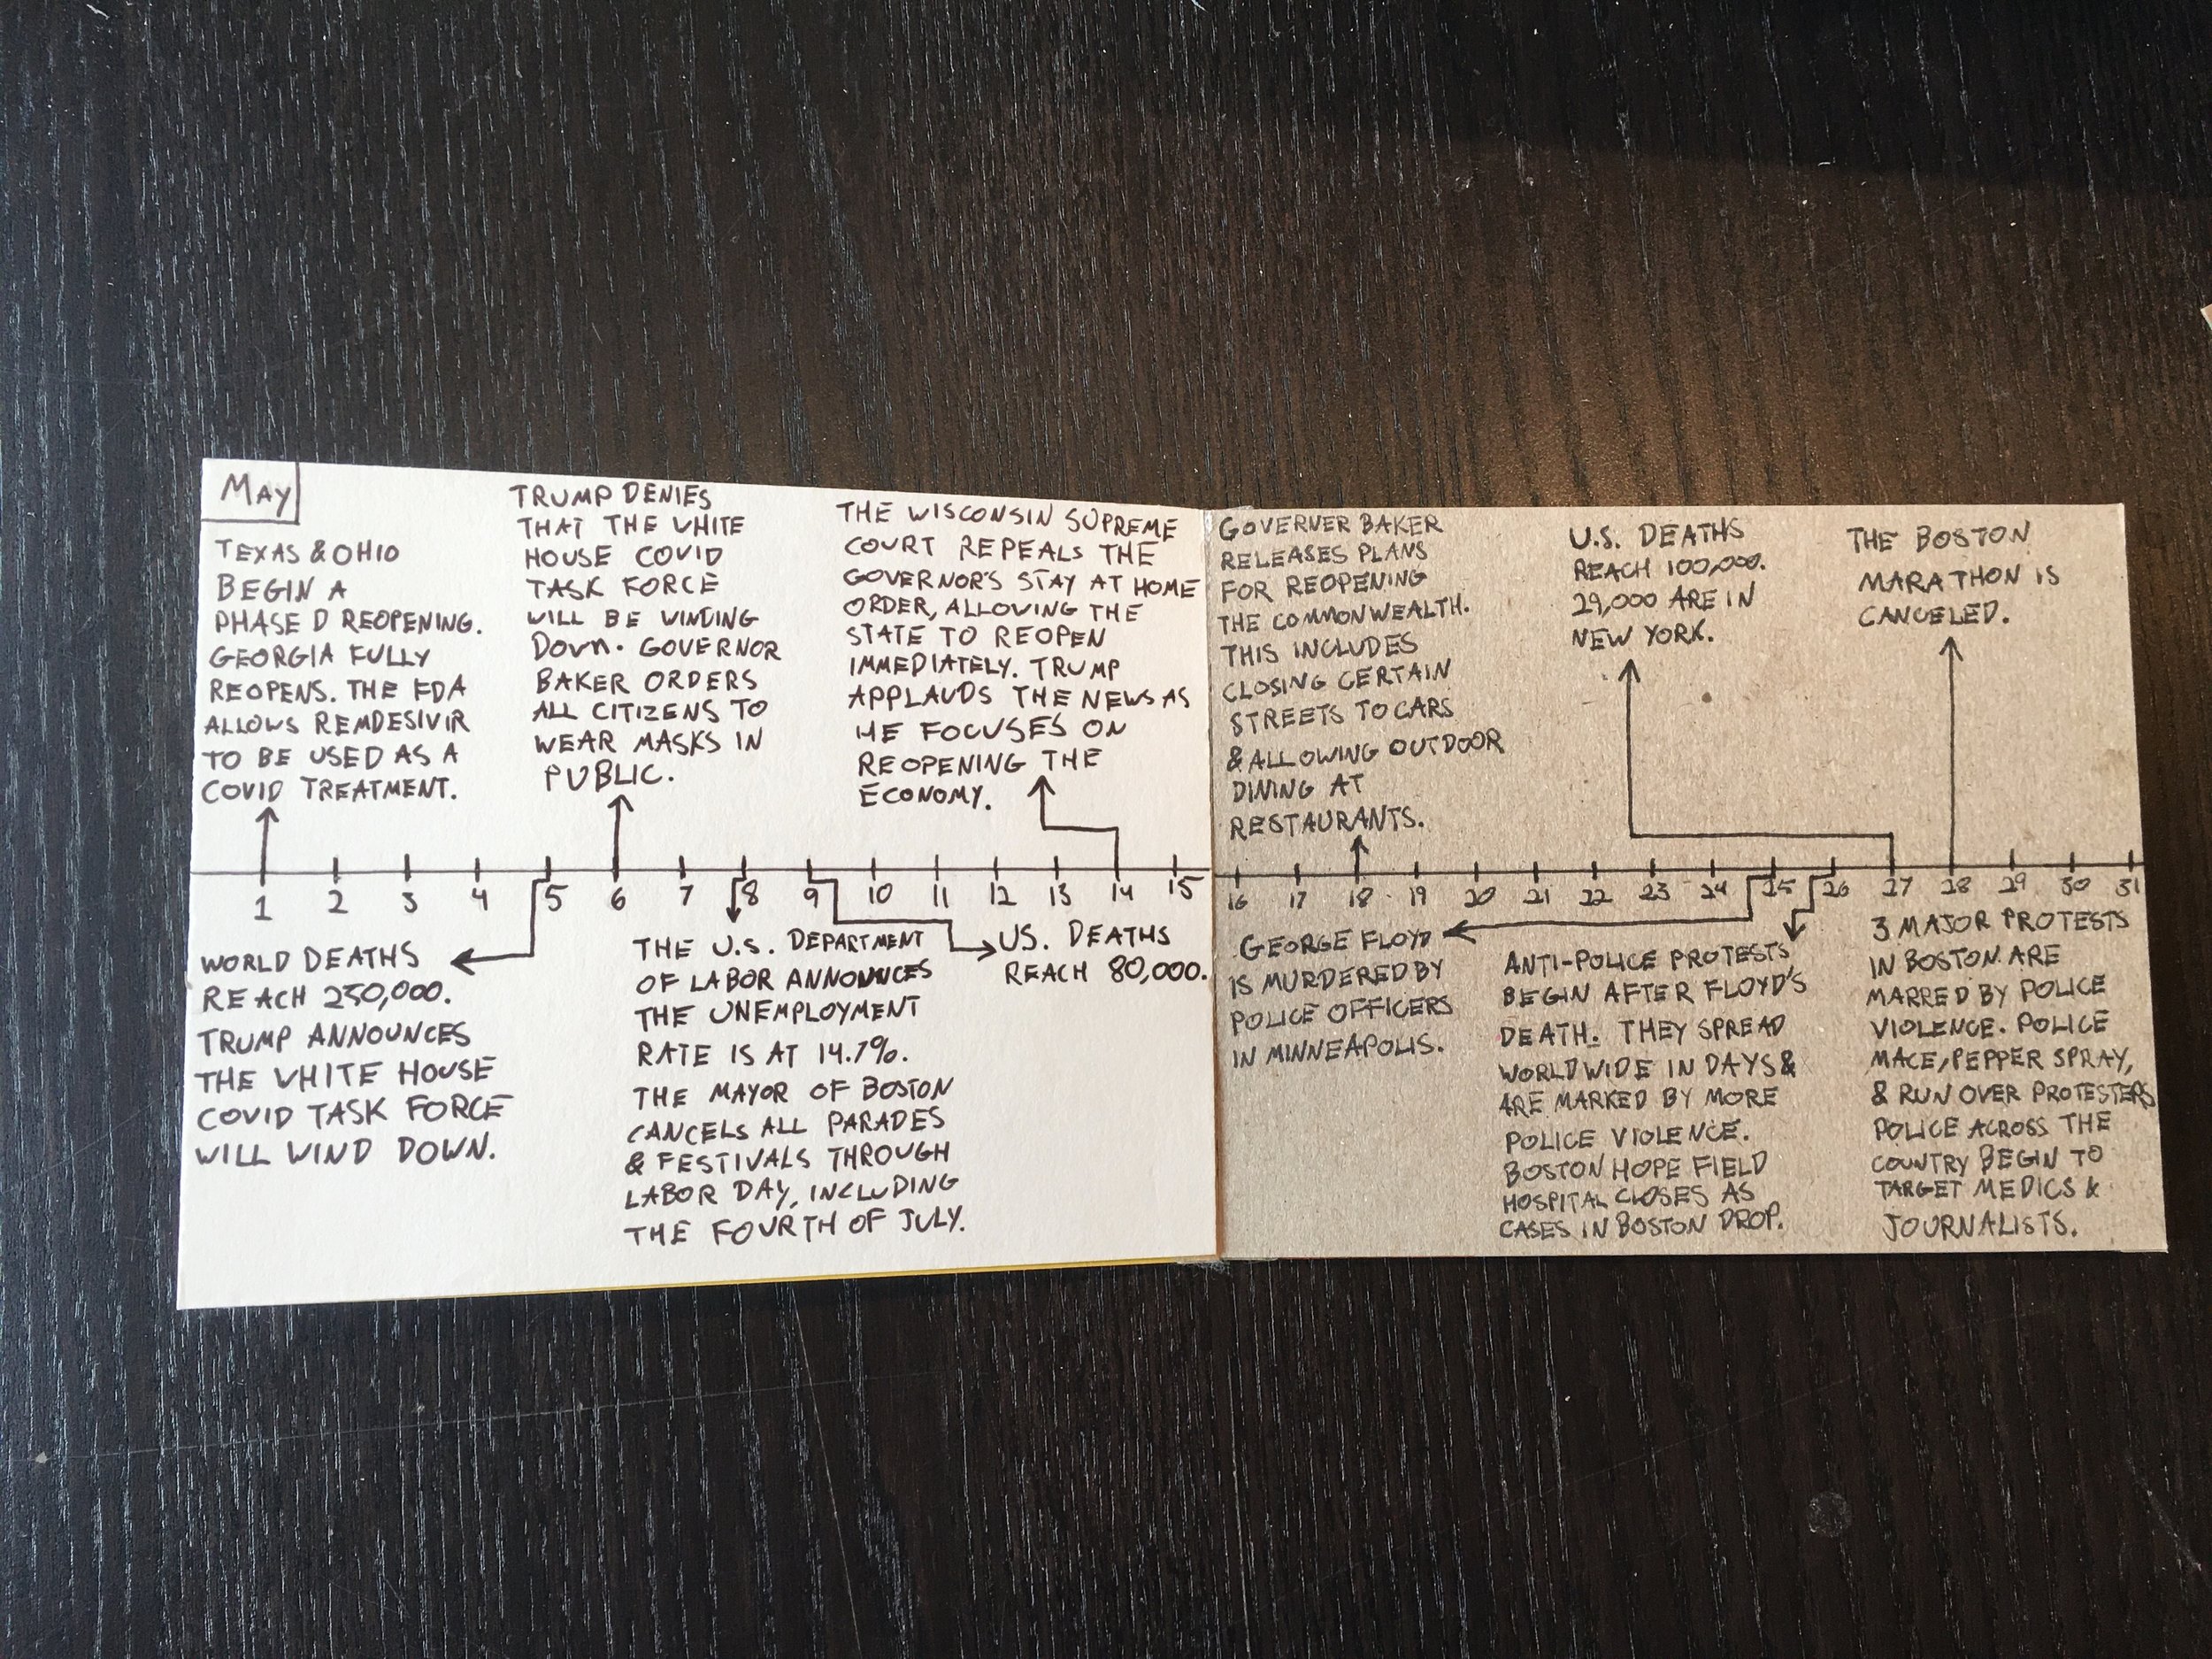 MAY
TEXAS & OHIO
BEGIN A
PHASED REOPENING.
GEORGIA FULLY
REOPENS. THE FDA
ALLOWS REMDESIVIR
TO BE USED AS A
COVID TREATMENT.
TRUMP DENIES
THAT THE WHITE
HOUSE COVID
TASK FORCE
WILL BE WINDING
DOWN. GOVERNOR
BAKER ORDERS
ALL CITIZENS TO
WEAR MASKS IN
PUBLIC.
THE WISCONSIN SUPREME
COURT REPEALS THE
GOVERNOR'S STAY AT HOME
ORDER, ALLOWING THE
STATE TO REOPEN
IMMEDIATELY. TRUMP
APPLAUDS THE NEWS AS
HE FOCUSES ON
REOPENING THE
ECONOMY.
GOVERNER BAKER
RELEASES PLANS
FOR REOPENING
THE COMMONWEALTH.
THIS INCLUDES
CLOSING CERTAIN
STREETS TO CARS
& ALLOWING OUTDOOR
DINING AT
RESTAURANTS.
U.S. DEATHS
REACH 100,000.
29,000 ARE IN
NEW YORK.
THE BOSTON
MARATHON IS
CANCELED.
1 2 3 4 5 6 7 8 9 10 11 12 13 14 15 16 17 18 19 20 21 22 23 24 25 26 27 28 29 30 31
WORLD DEATHS
REACH 250,000.
TRUMP ANNOUNCES
THE WHITE HOUSE
COVID TASK FORCE
WILL WIND DOWN.
THE U.S. DEPARTMENT
OF LABOR ANNOUNCES
THE UNEMPLOYMENT
RATE IS AT 14.7%.
THE MAYOR OF BOSTON
CANCELS ALL PARADES
& FESTIVALS THROUGH
LABOR DAY, INCLUDING
THE FOURTH OF JULY.
US. DEATHS
REACH 80,000.
GEORGE FLOYD
IS MURDERED BY
POLICE OFFICERS
IN MINNEAPOLIS.
ANTI-POLICE PROTESTS
BEGIN AFTER FLOYD'S
DEATH. THEY SPREAD
WORLDWIDE IN DAYS &
ARE MARKED BY MORE
POLICE VIOLENCE.
BOSTON HOPE FIELD
HOSPITAL CLOSES AS
CASES IN BOSTON DROP.
3 MAJOR PROTESTS
IN BOSTON ARE
MARRED BY POLICE
VIOLENCE. POLICE
MACE, PEPPER SPRAY,
& RUN OVER PROTESTERS
POLICE ACROSS THE
COUNTRY BEGIN TO
TARGET MEDICS &
JOURNALISTS.